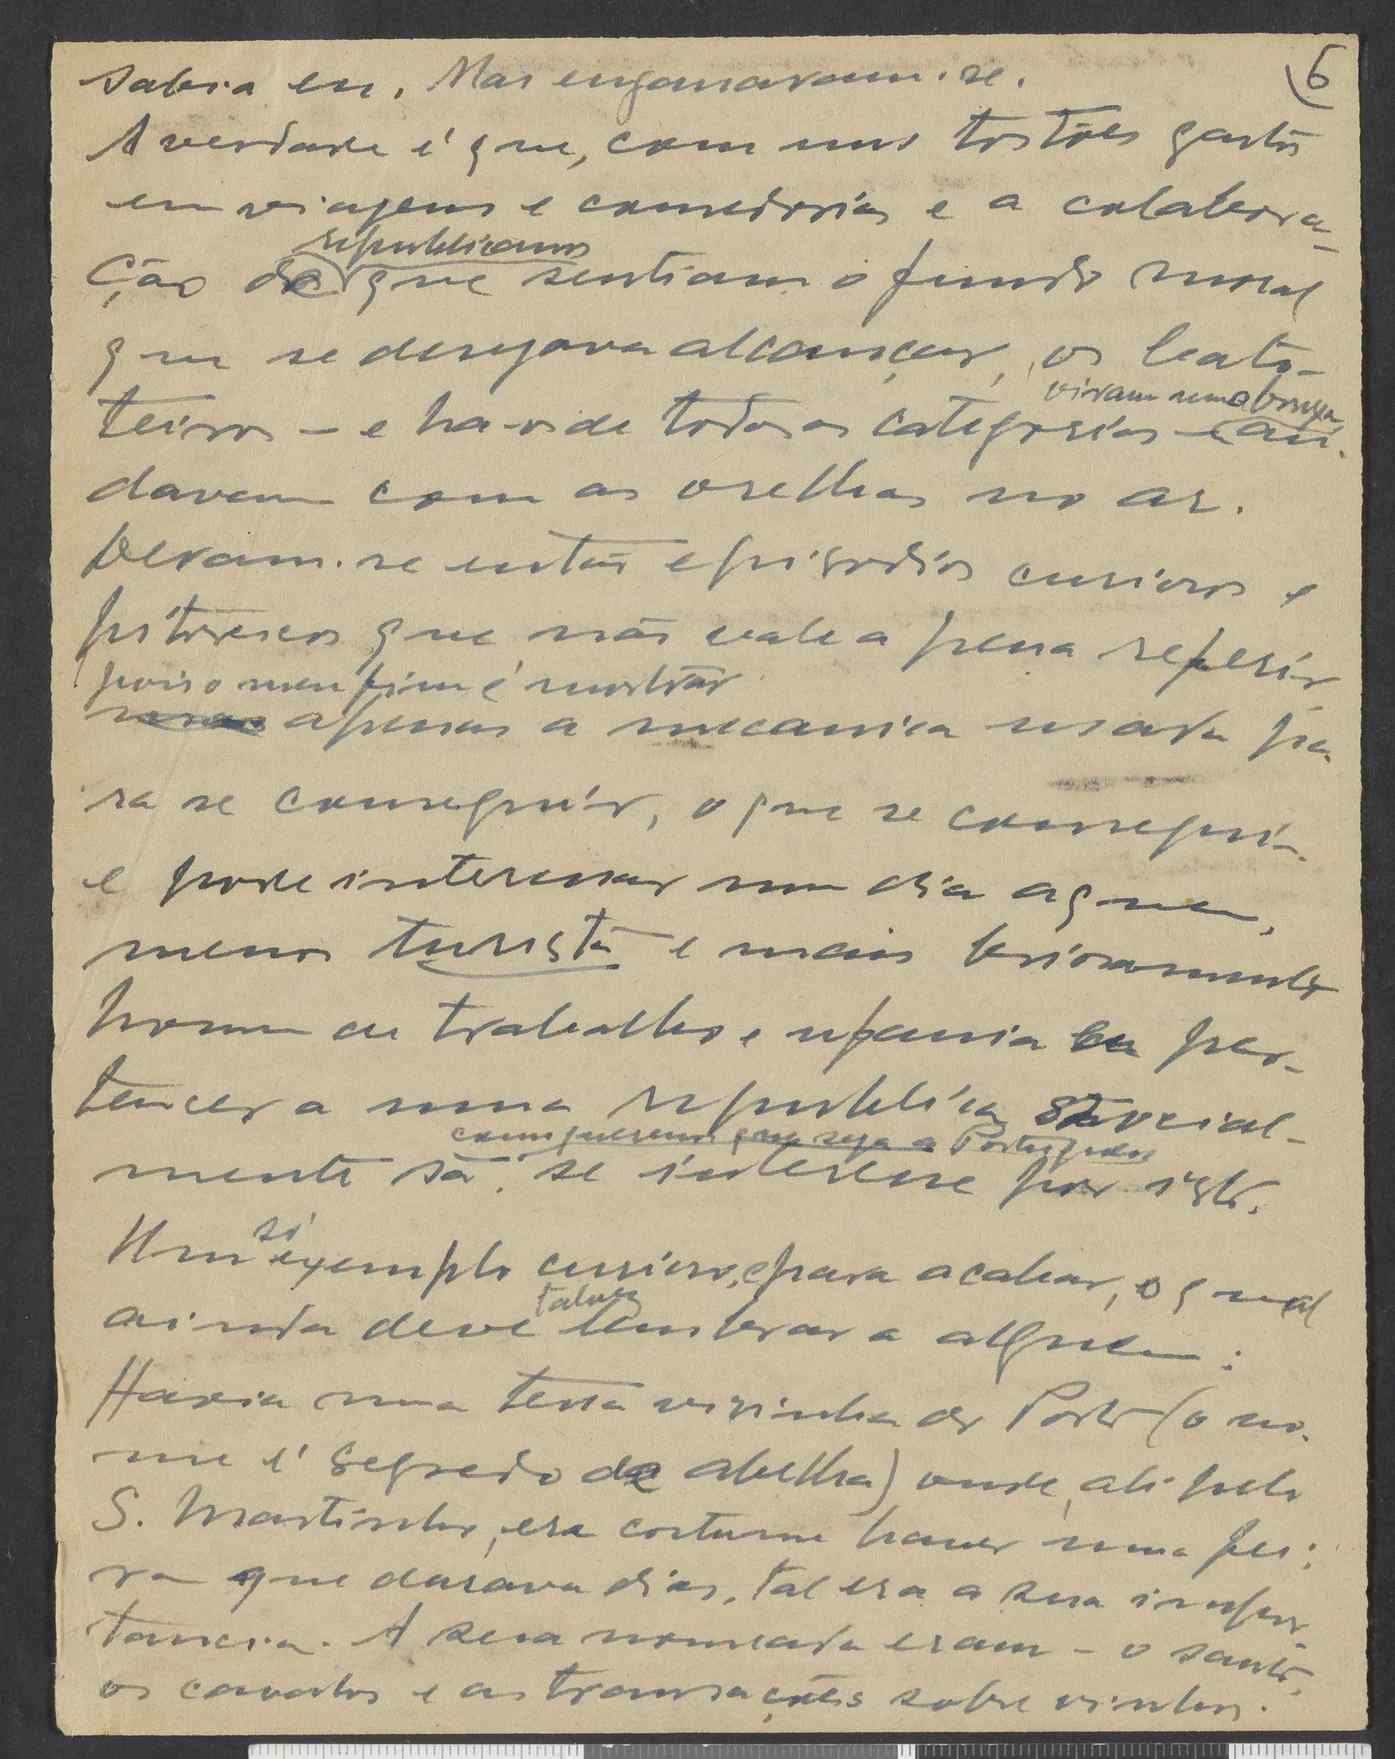 6
sabia eu. Mas enganaram-se.
A verdade é que, com uns tostões gastos
em viagens e comedorias e a colabora-
republicanos
ção de que sentiam o fundo moral
que se desejava alcançar, os bato-
viram uma bruxa
teiros – e ha-os de todas as categorias – e an-
davam com as orelhas no ar.
Deram-se então episodios curiosos e
pitorescos que não vale a pena referir
pois o meu fim é mostrar
apenas a mecanica usada pa
ra se conseguir, o que se conseguiu
e pode interessar um dia a quem,
menos turista e mais briosamente
homem de trabalho e ufania em per-
tencer a uma republica social-
Portugueza
mente sã, se interesse por isto.
só
Um exemplo curioso, e para acabar, o qual
talvez
ainda deve lembrar a alguem:
Havia numa terra vizinha do Porto (o no-
me é segredo de abelha) onde, ali pelo
S. Martinho, era costume haver uma fei-
ra que durava dias, tal era a sua impor-
tancia. A sua nomeada eram – o santo,
os cavalos e as transações sobre vinhos.